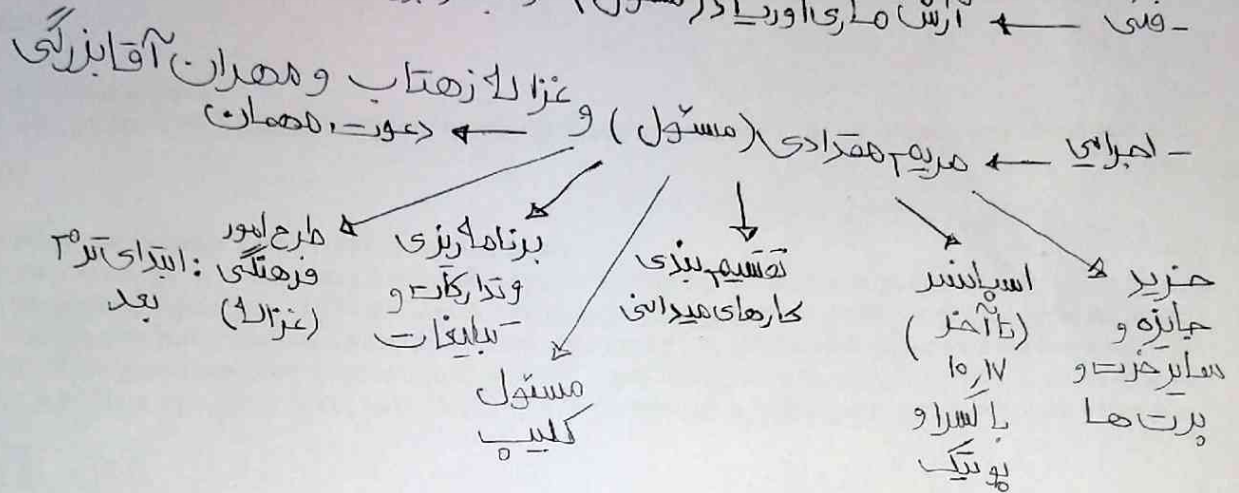 - فنی ← آرش
غزاله زهتاب و مهران آقابزرگی
- اجرایی ← مریم مقدادی (مسئول) و ← دعوت مهمان
خرید
جایزه و
سایر خرت و
پرت ها
اسپانسر
(تا آخر)
۱۰,۱۷
با کسرا و
پونتیک
تقسیم بندی
کارهای میدانی
مسئول
کلیپ
برنامه ریزی
و تدارکات و
تبلیغات
طرح امور
فرهنگی : ابتدای ترم
(غزاله) بعد